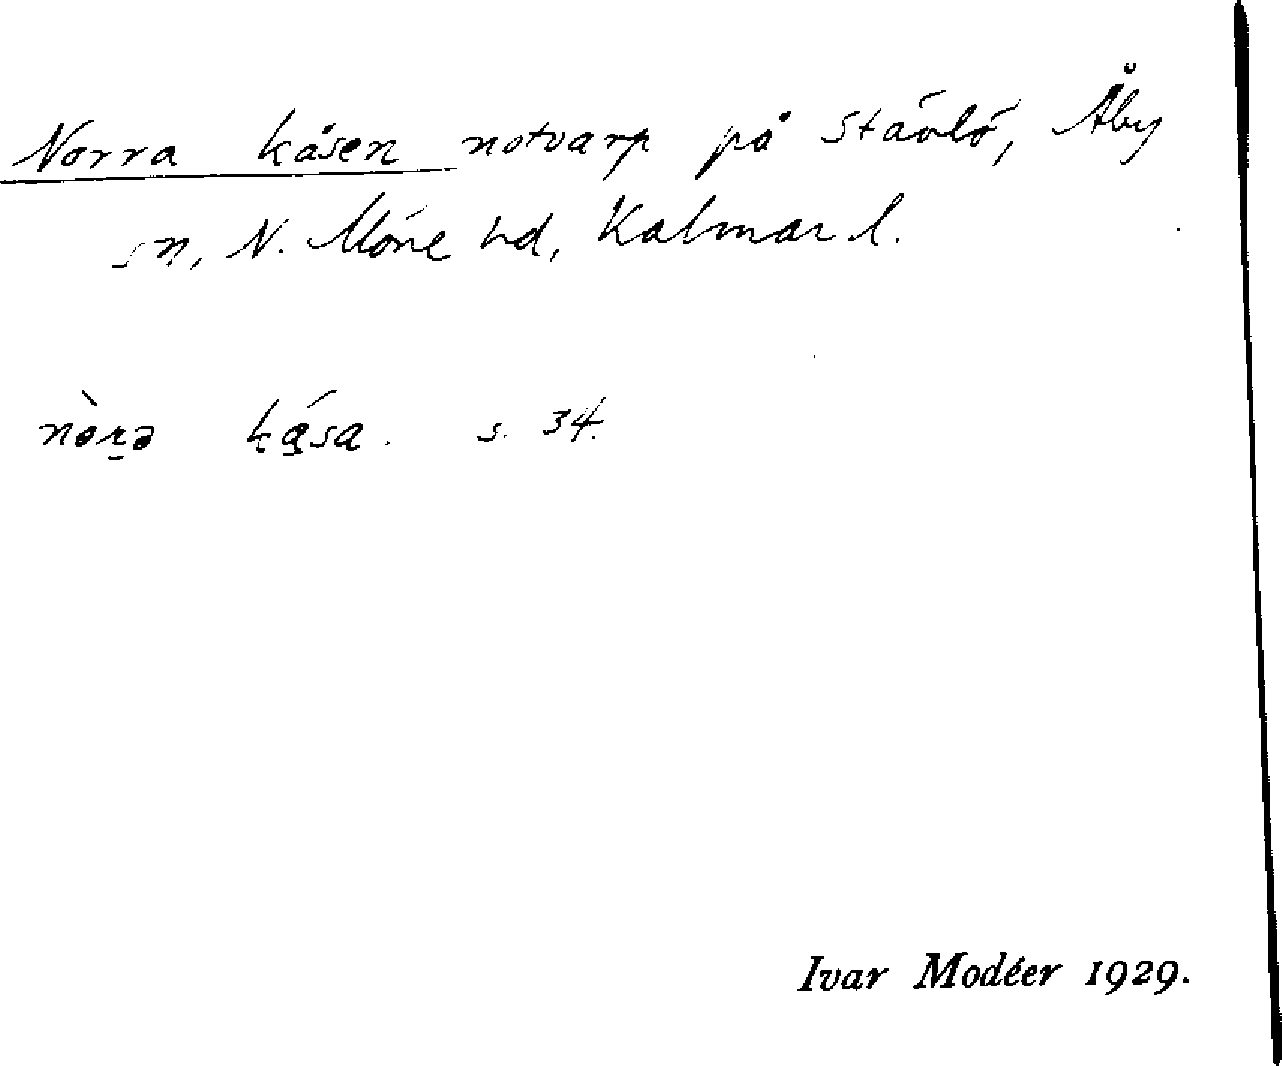 Norra kåsen notvarp på Stävlö, Åby
sn, N. Möre hd, Kalmar l.
nòrə kása. s. 34.
Ivar Modéer 1929.